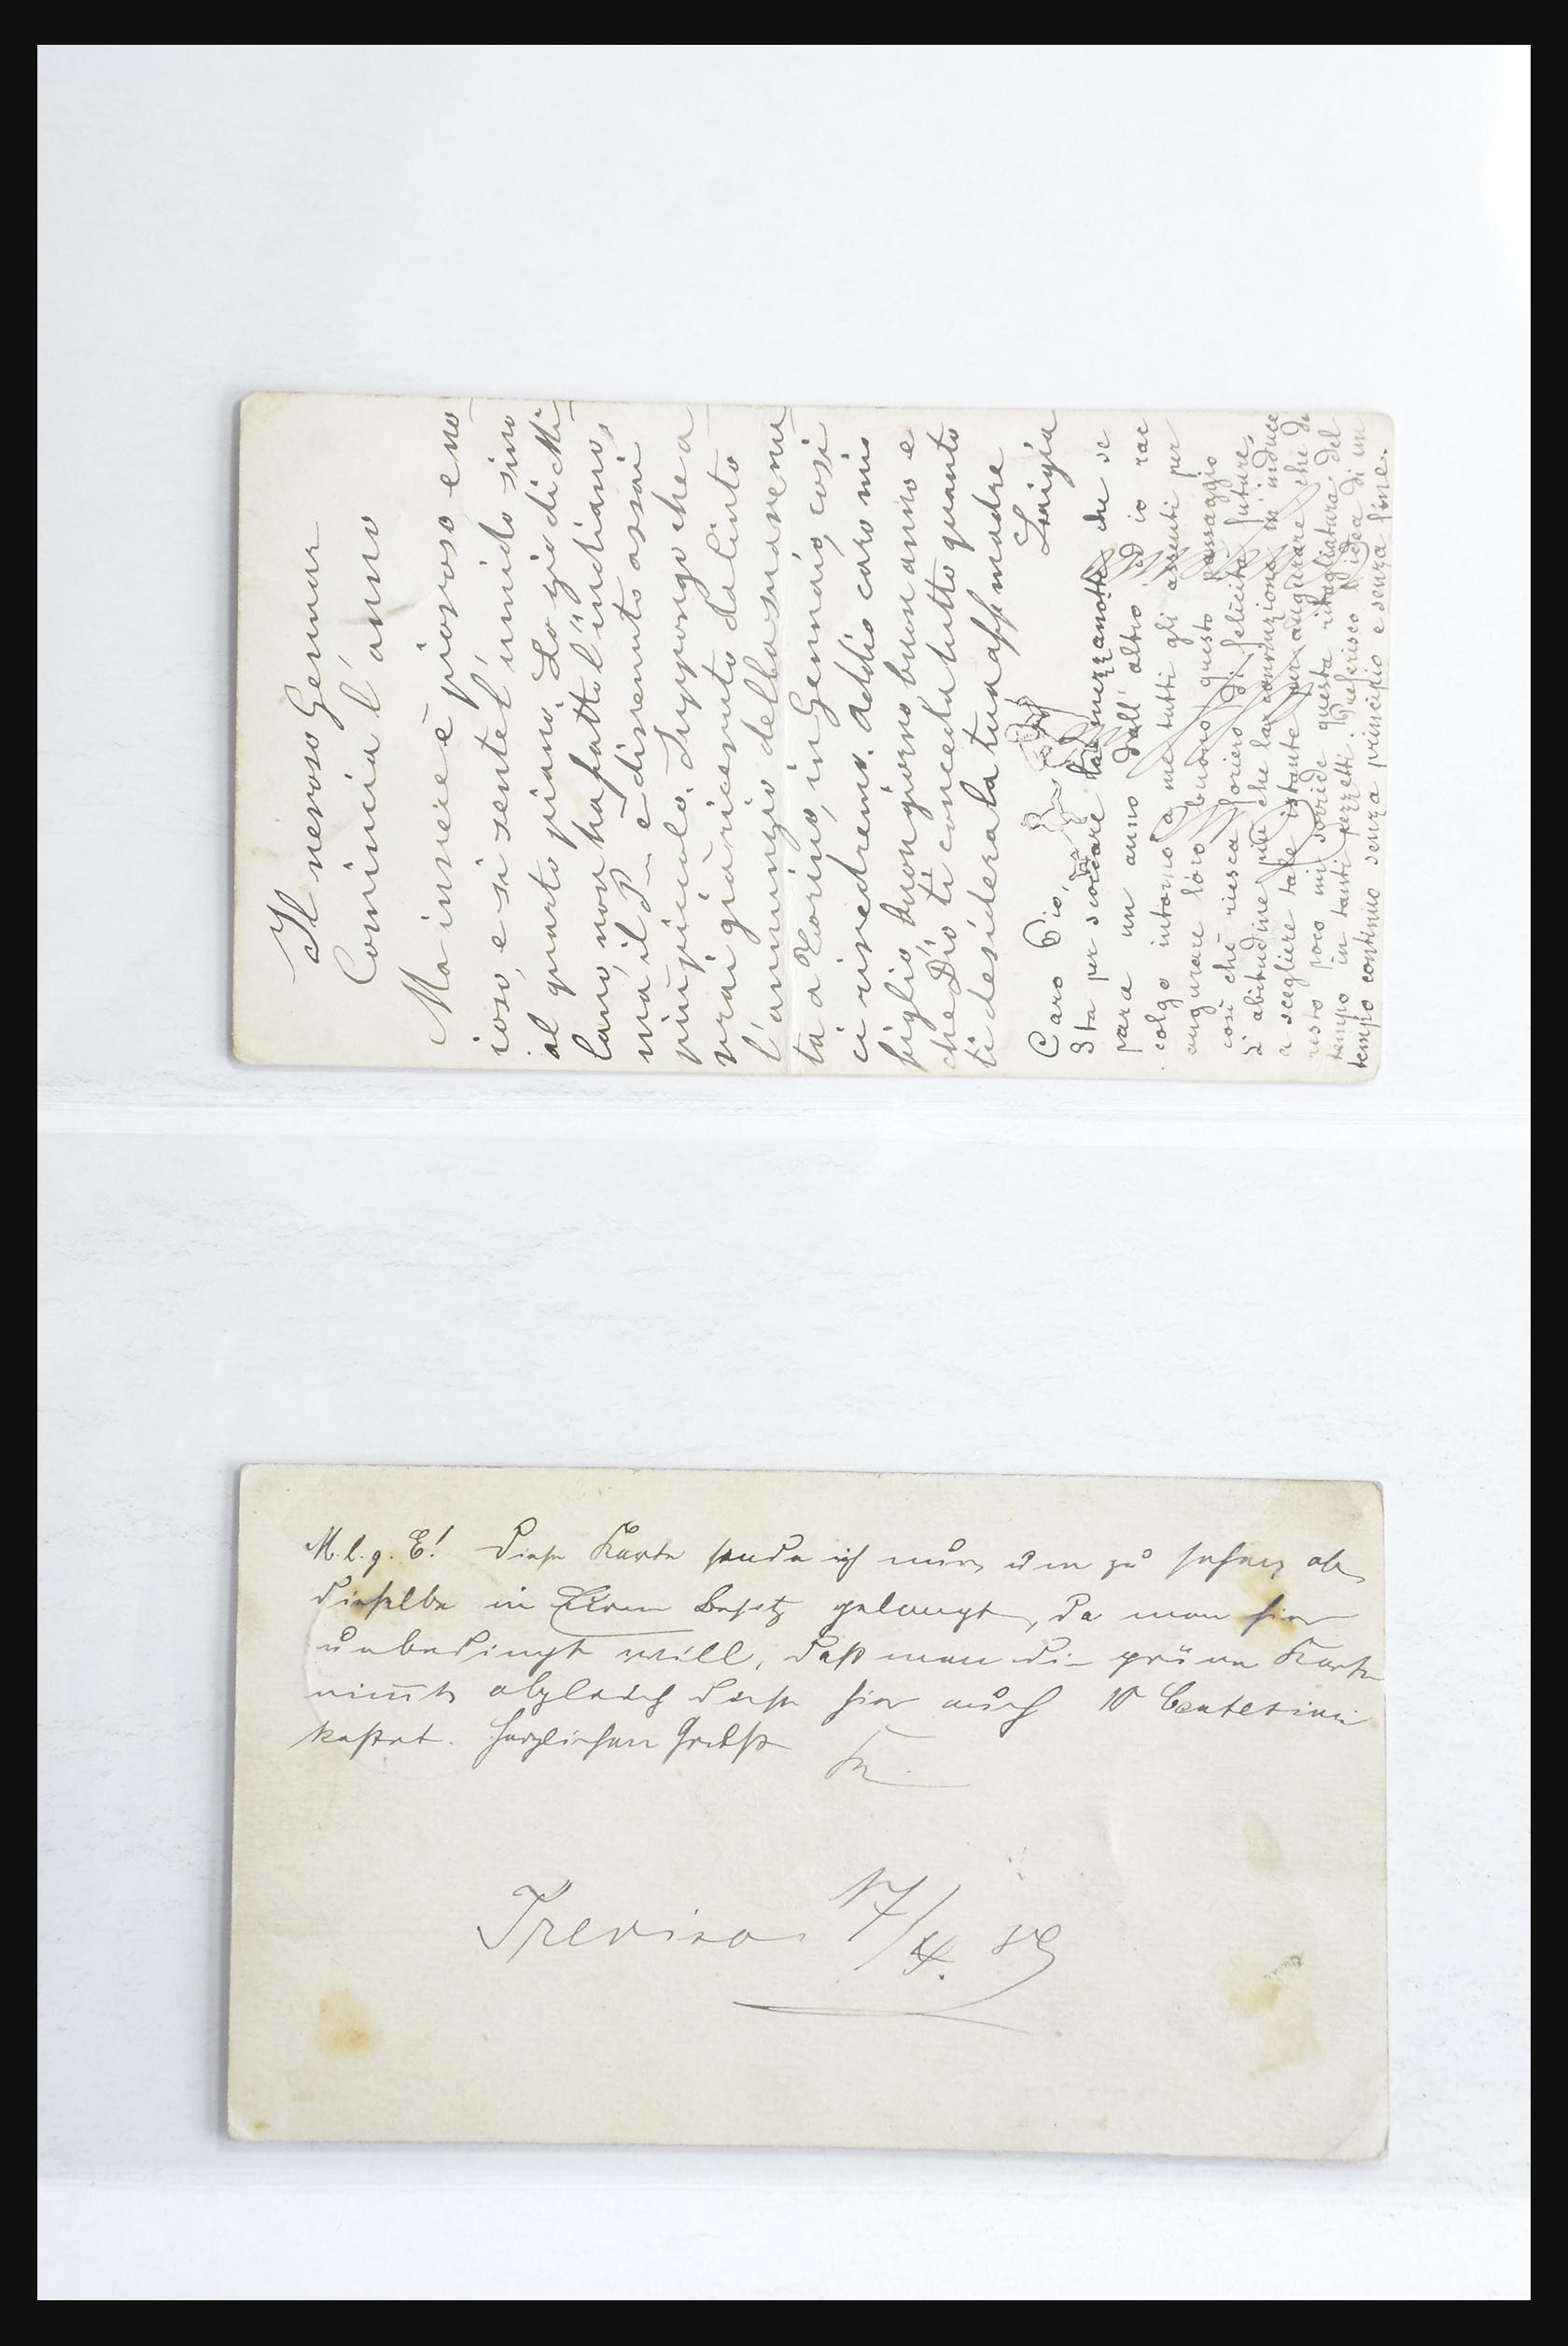 Il nevoso Gennar
Comincia l'anno
Ma invece è piovoso e no
ioso, e si sente l'umido sino
al quarto piano. Lo zio di Mi
lano, non ha fatto l'indiano,
ma il P— è divenuto assai
più piccolo. Suppongo che a
vrai già ricevuto da
l'annunzio della sua venu
ta a Torino, in Gennaio, così
ci rivedremo. Addio caro mio
figlio, buon giorno buon anno e
che Dio ti conceda tutto quanto
ti desidera la tua aff madre
Luigia
Caro Pio,
Sta per scoccare la mezzanotte che se
para un anno dall'altro ed io rac
colgo intorno a me tutti gli assenti per
augurare loro buono questo passaggio
così che riesca foriero di felicità future.
L'abitudine più che la convinzione m'induce
a scegliere tale istante per augurare che du
resto poco mi sorride questa ritagliatura del
tempo in tanti pezzetti. Preferisco l'idea di un
tempo continuo senza principio e senza fine.
M. l. g. E! Diese Karte sende ich nur, um zu sehen, ob
dieselbe in Besitz gelangt, da man hier
unbedingt will, daß man die grüne Karte
nimmt, obgleich diese hier auch 10 Centesimi
kostet. Herzlichen Gruß
Treviso 17/4. 89